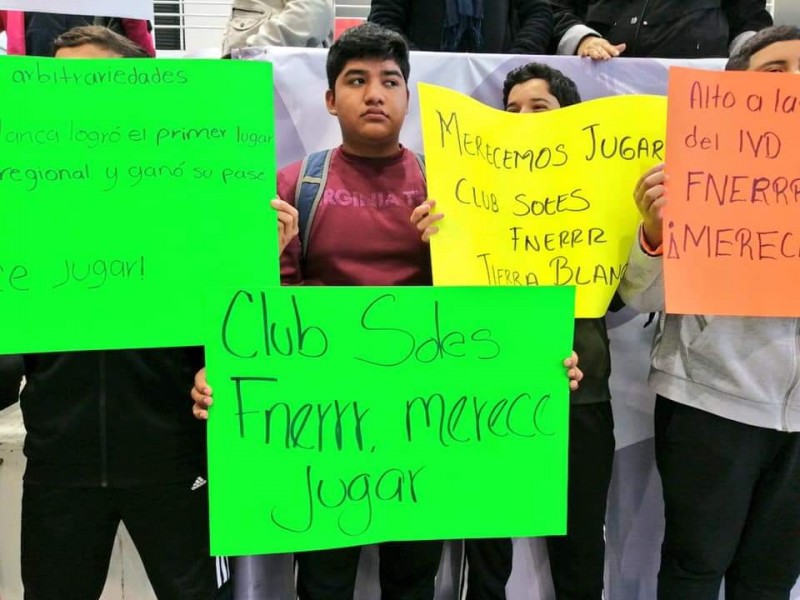 arbitrariedades
lanca logró el primer lugar
regional y ganó su pase
ce jugar!
RGINIA T
MERECEMOS JUGAR
CLUB SOLES
FNERRR
TIERRA BLANC
Alto a la
del IVD
FNERRR
¡MEREC
Club Soles
Fnerrr, merece
jugar